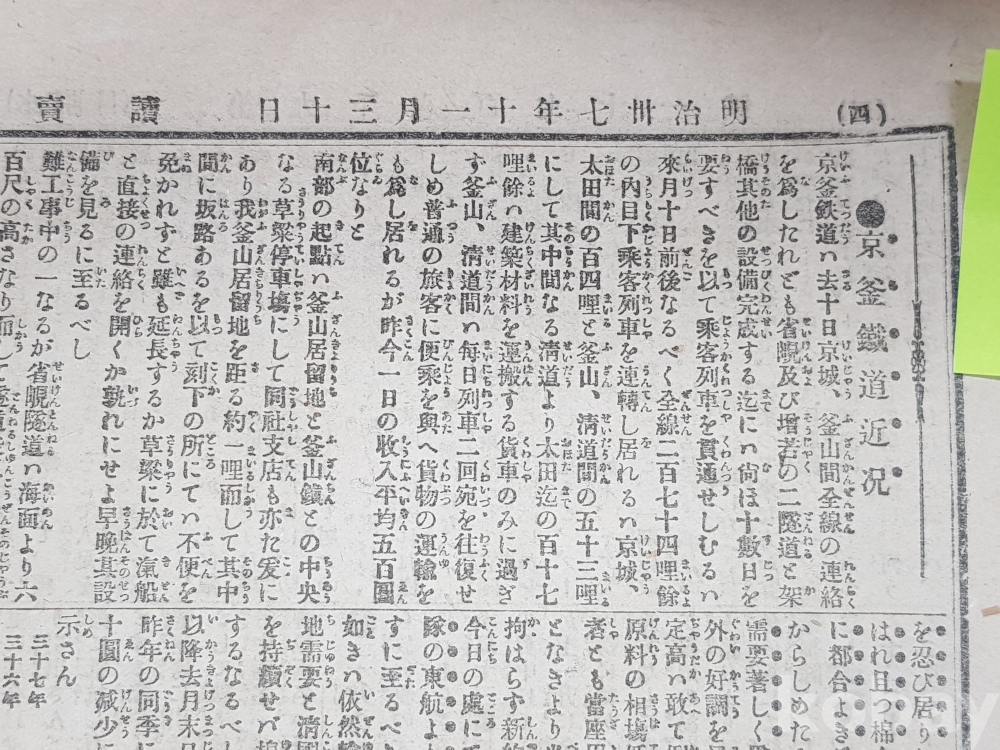 (四)
明治卅七年十一月三十日
讀賣
●京釜鐵道近況
京釜鉄道ハ去十日京城、釜山間全線の連絡
を爲したれども省峴及び增若の二隧道と架
橋其他の設備完成する迄にハ尙ほ十數日を
要すべきを以て乘客列車を貫通せしむるハ
來月十日前後なるべく全線二百七十四哩餘
の內目下乘客列車を連轉し居れるハ京城、
太田間の百四哩と釜山、淸道間の五十三哩
にして其中間なる淸道より太田迄の百十七
哩餘ハ建築材料を運搬する貨車のみに過ぎ
ず釜山、淸道間ハ每日列車二回宛を往復せ
しめ普通の旅客に便乘を與へ貨物の運輸を
も爲し居れるが昨今一日の收入平均五百圓
位なりと
南部の起點ハ釜山居留地と釜山鎭との中央
なる草梁停車塲にして同社支店も亦た爰に
あり我釜山居留地を距る約一哩而して其中
間に坂路あるを以て刻下の所にてハ不便を
免かれずと雖も延長するか草梁に於て滊船
と直接の連絡を開くか孰れにせよ早晩其設
備を見るに至るべし
難工事中の一なるが省峴隧道ハ海面より六
百尺の高さなり而して
を忍び居り
はれ且つ棉
に都合よき
からしめた
需要著しく
外の好調を
定高い敢て
原料の相塲
者とも當座
となきより
拘はらず新
今日の處に
隊の東航よ
すに至るべ
如きハ依然
地需要と淸國
を持續せバ
するなるべし
以降去月末
昨年の同季に
十圓の減少に
示さん
三十七年
三十六年